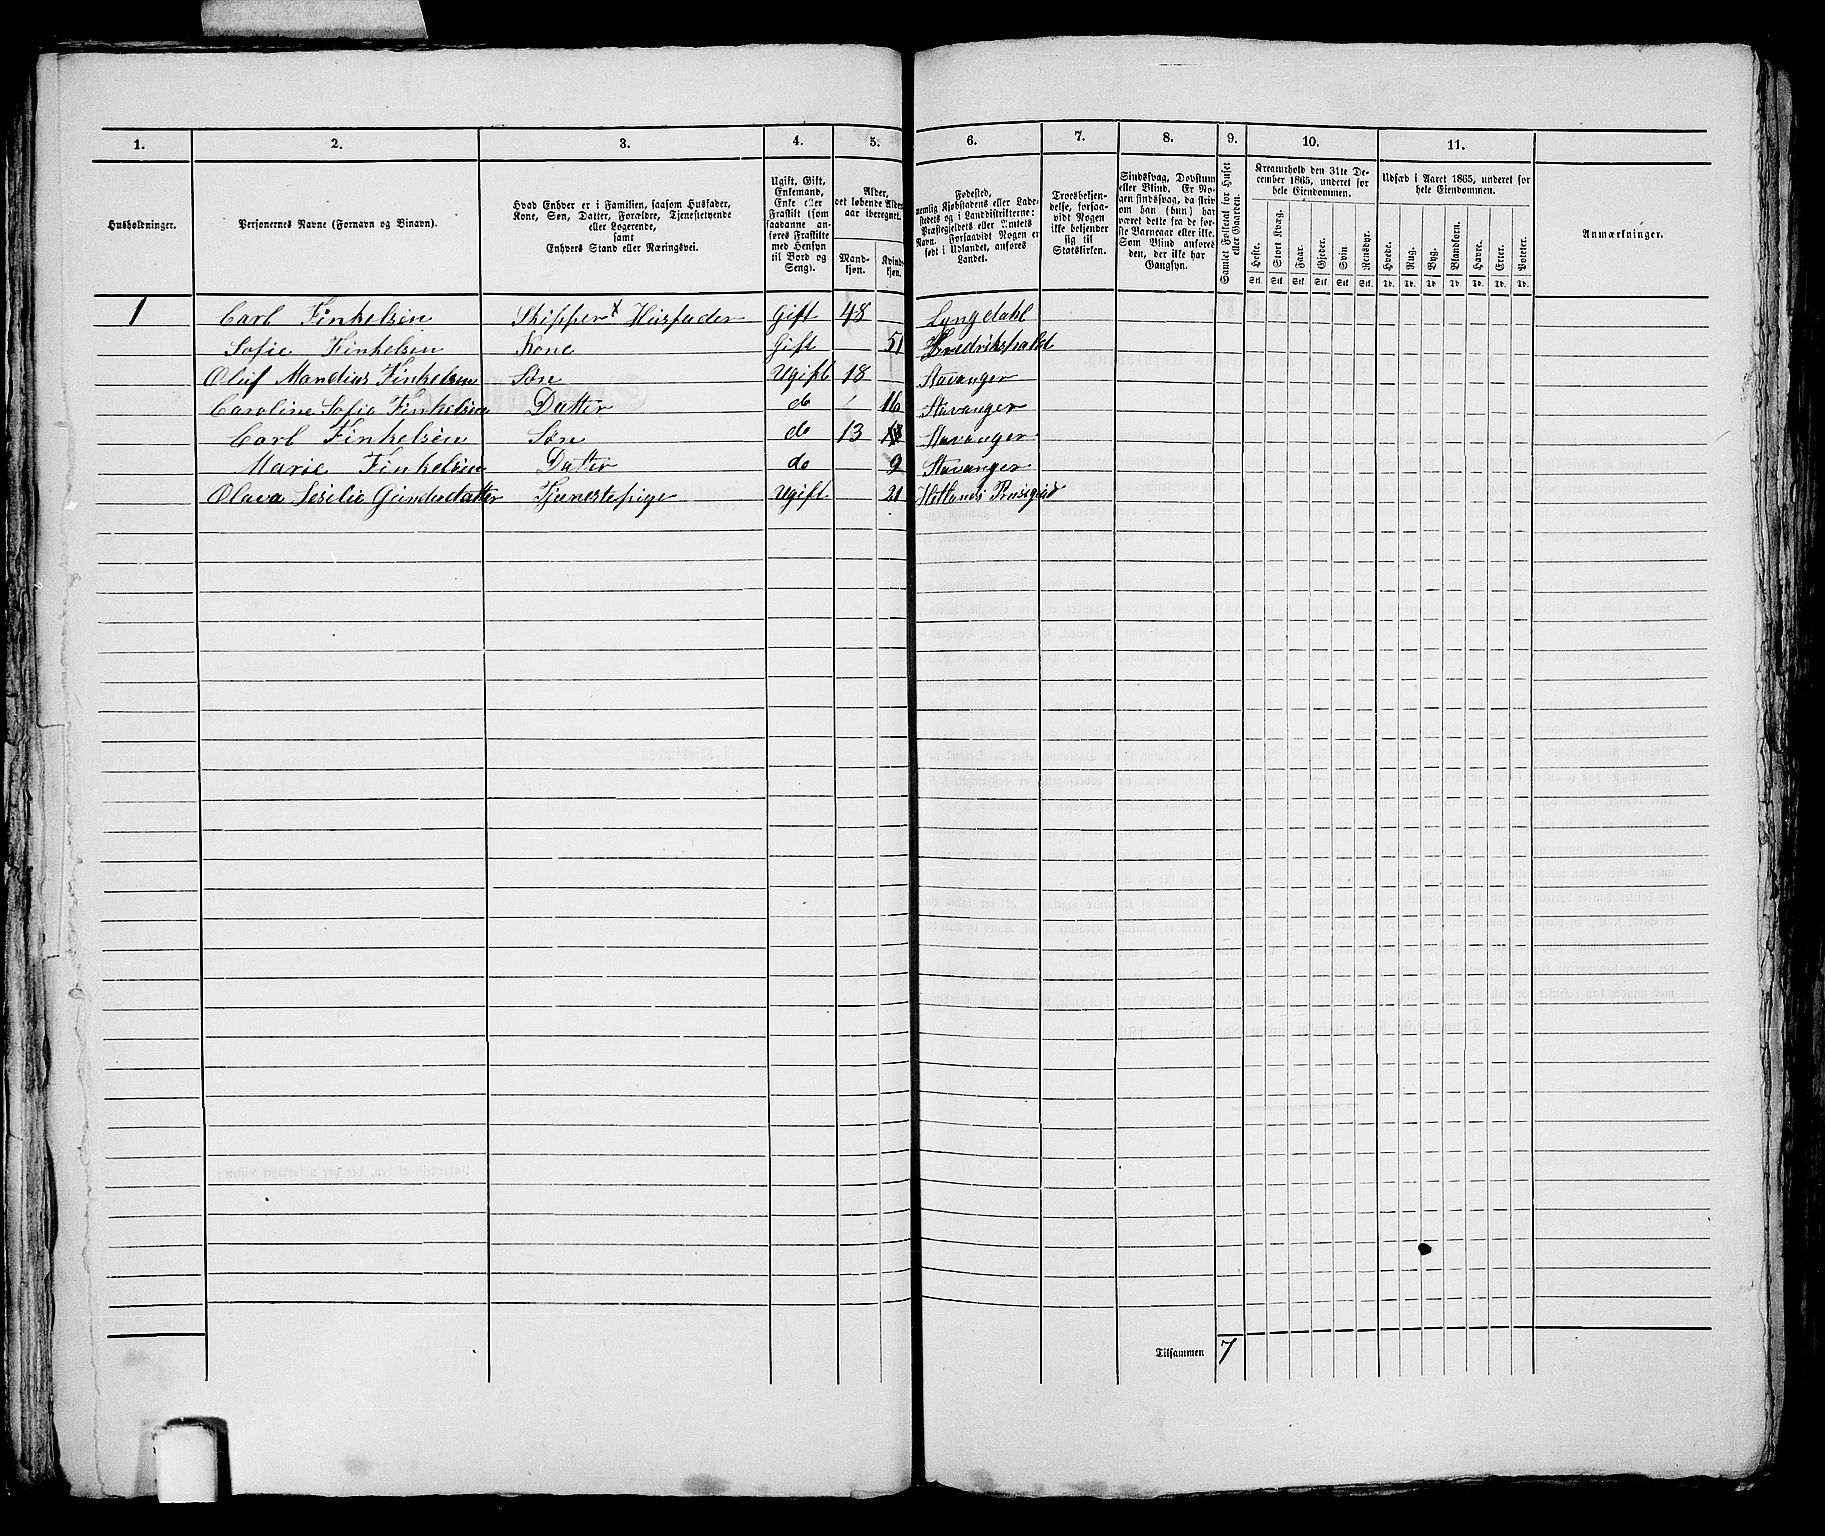 1. 2. 3. 4. 5. 6. 7. 8. 9. 10. 11.
Husholdninger.
Personernes Navne (Fornavn og Binavn).
Hvad Enhver er i Familien, saasom Husfader,
Kone, Søn, Datter, Forældre, Tjenestetyende
eller Logerende,
samt
Enhvers Stand eller Næringsvei.
Ugift, Gift,
Enkemand,
Enke eller
Fraskilt (som
saadanne an-
føres Fraskilte
med Hensyn
til Bord og
Seng).
Alder,
det løbende Alders-
aar iberegnet.
Mand-
kjøn.
Kvind-
kjøn.
Fødested,
nemlig Kjøbstadens eller Lade-
stedets og i Landdistrikterne:
Præstegjeldets eller Amtets
Navn. Forsaavidt Nogen er
født i Udlandet, anføres
Landet.
Troesbekjen-
delse, forsaa-
vidt Nogen
ikke bekjender
sig til
Statskirken.
Sindssvag, Døvstum
eller Blind. Er No-
gen sindssvag, da skriv
om han (hun) har
været dette fra de før-
ste Barneaar eller ikke.
Som Blind anføres
den, der ikke har
Gangsyn.
Samlet Folketal for Huset
eller Gaarden.
Kreaturhold den 31te De-
cember 1865, underet for
hele Eiendommen.
Heste. Stort Kvæg. Faar. Gjeder. Svin. Rensdyr.
Stk. Stk. Stk. Stk. Stk. Stk.
Udsæd i Aaret 1865, underet for
hele Eiendommen.
Hvede. Rug. Byg. Blandkorn. Havre. Erter. Poteter.
Td. Td. Td. Td. Td. Td. Td.
Anmærkninger.
1 Carl Finkelsen Skipper x Husfader Gift 48 Lyngdahl
Sofie Finkelsen Kone Gift 51 Fredrikshald
Oluf Mandius Finkelsen Søn Ugift 18 Stavanger
Caroline Sofie Finkelsen Datter do 16 Stavanger
Carl Finkelsen Søn do 13 Stavanger
Marie Finkelsen Datter do 9 Stavanger
Olava Sesilie Gundersdatter Tjenestepige Ugift 21 Hetlands Præsgjeld
Tilsammen 7